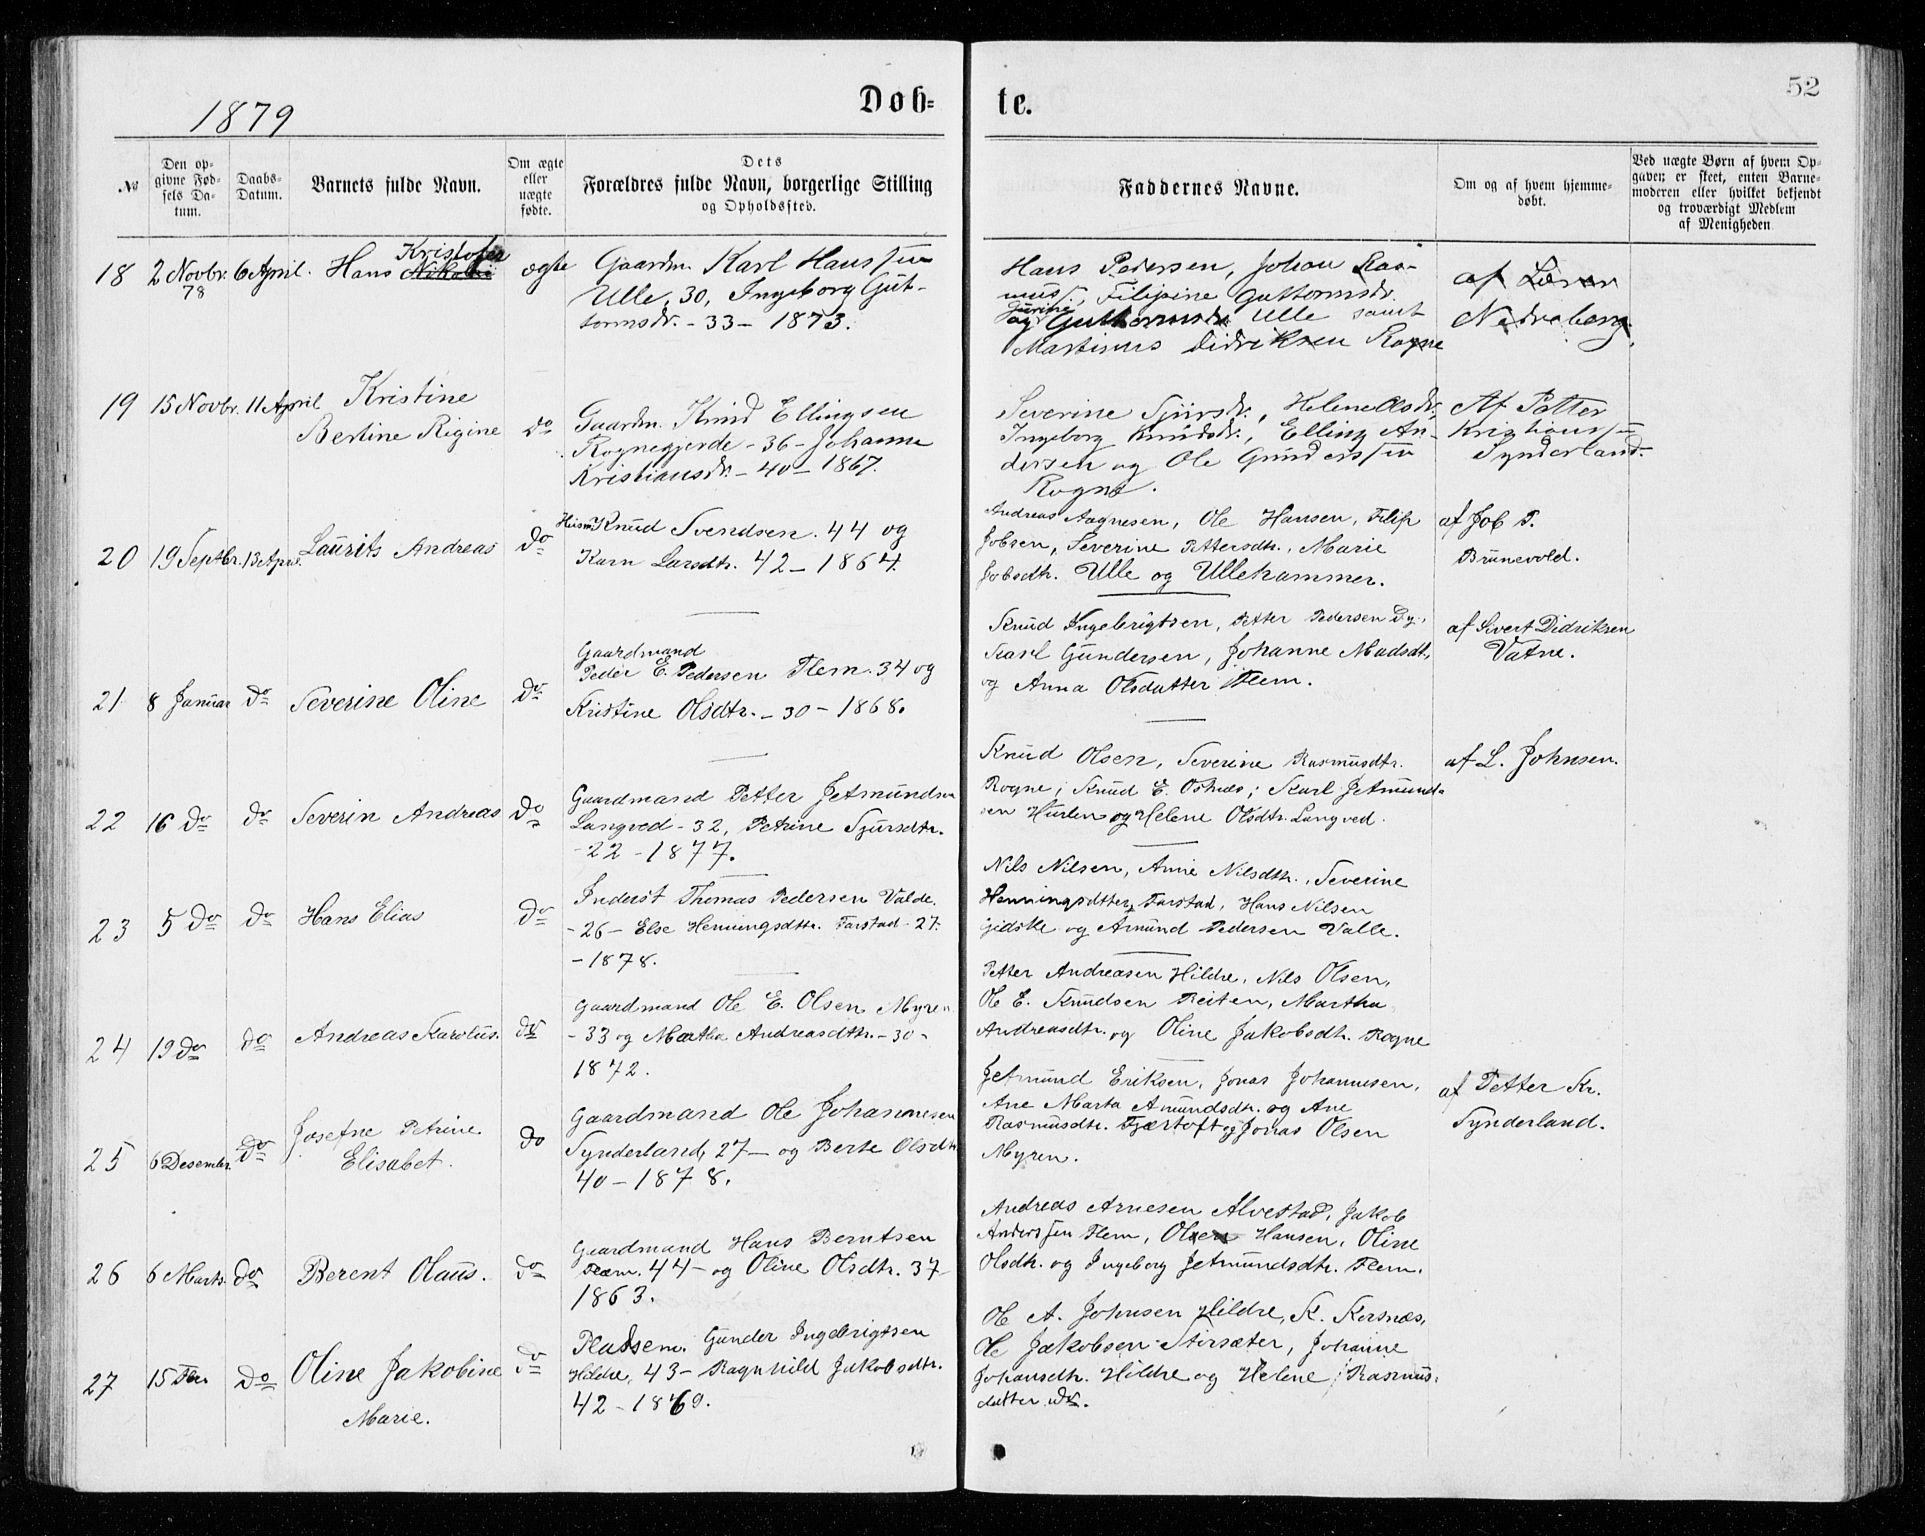 1879
Døb=
te.
52
№
Den op-
givne Fød-
sels Da-
tum.
Daabs-
Datum.
Barnets fulde Navn.
Om ægte
eller
uægte
fødte.
Dets
Forældres fulde Navn, borgerlige Stilling
og Opholdssted.
Faddernes Navne.
Om og af hvem hjemme-
døbt.
Ved uægte Børn af hvem Op-
gaven er skeet, enten Barne-
moderen eller hvilket bekjendt
og troværdigt Medlem
af Menigheden
18 2 Novbr. 6 April. Hans Kristofer
78
ægte
Gaardm. Karl Hanssen
Ulle, 30, Ingeborg Gut-
tormsdr. - 33 - 1873.
Hans Pedersen, Johan Ras-
mus., Filipine Guttormsdr.
og Guttormsdr. Ulle samt
Martinus Didriksen Rogne
af Lærer
Nedreberg.
19 15 Novbr. 11 April Kristine
Bertine Rigine
do
Gaardm. Knud Ellingsen
Rognegjerde - 36 - Johanne
Kristiansdr. - 40 - 1867.
Severine Sjursdr., Helene Olsdr,
Ingeborg Knudsdr., Elling An-
dersen og Ole Gunderssen
Rogne.
Af Petter
Kristianssen
Synderland.
20 19 Septbr. 13 April. Laurits Andreas
do
Husm. Knud Svendsen. 44 og
Karn Larsdtr. 42 - 1864.
Andreas Aagnesen, Ole Hansen, Filip
Jobsen, Severine Pettersdtr., Marie
Jobsdtr. Ulle og Ullehammer.
af Job P.
Brunevold.
21 8 Januar do Severine Oline
do
Gaardmand
Peder E. Pedersen Flem. 34 og
Kristine Olsdtr. - 30 - 1868.
Knud Ingebrigtsen, Petter Pedersen Dy.,
Karl Gundersen, Johanne Madsdt,
og Anna Olsdatter Flem.
af Sivert Didriksen
Vatne.
22 16 do do Severin Andreas
do
Gaardmand Petter Jetmundsen
Langved - 32, Petrine Sjursdtr.
- 22 - 1877.
Knud Olsen, Severine Rasmusdtr.
Rogne; Knud E. Oshæs; Karl Jetmund-
sen Huslen og Helene Olsdtr. Langved.
af L. Johnsen.
23 5 do do Hans Elias
do
Inderst Thomas Pedersen Valde.
- 26 - Else Henningsdttr. Farstad - 27.
- 1878.
Nils Nilsen, Anne Nilsdtr., Severine
Henningsdtter Farstad, Hans Nilsen
Gidske og Amund Pedersen Valle.
24 19 do do Andreas Karolus.
do
Gaardmand Ole E. Olsen Myren
- 33 og Martha Andreasdttr. - 30 -
1872.
Petter Andreasen Hildre, Nils Olsen,
Ole E. Knudsen Reiten, Martha
Andreasdtr. og Oline Jakobsdtr. Rogne
25 6 Desembr. do Josefne Petrine
Elisabet.
do
Gaardmand Ole Johannesen
Synderland, 27 - og Berte Olsdtr
40 - 1878.
Jetmund Eriksen, Jonas Johannesen,
Ane Marta Amundsdtr. og Ane
Rasmusdtr. Fjærtoft og Jonas Olsen
Myren.
af Petter Kr.
Synderland.
26 6 Marts. do Berent Olaus.
do
Gaardmand Hans Berntsen
Flem. 44 - og Oline Olsdtr. 37
1863.
Andreas Arnesen Alvestad, Jakob
Anderssen Flem, Olsen Hansen, Oline
Olsdtr. og Ingeborg Jetmundsdtr. Flem.
27 15 Febr do Oline Jakobine
Marie.
do
Pladsem. Gunder Ingebrigtsen
Hildre, 43 - Ragnhild Jakobsdtr.
42 - 1869.
Ole A. Johnsen Hildre, K. Kersnæs,
Ole Jakobsen Størsæter, Johanne
Johansdtr. Hildre og Helene Rasmus-
datter do.